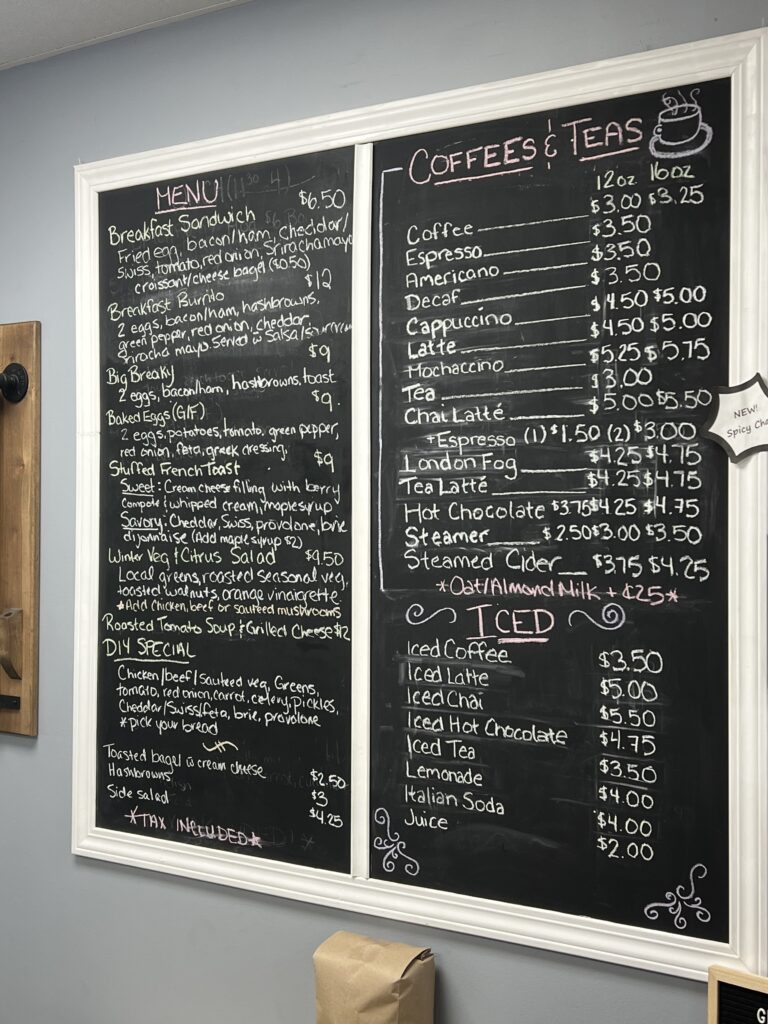 MENU (11:30-4)
Breakfast Sandwich $6.50
Fried egg, bacon/ham, cheddar/
Swiss, tomato, red onion, Sriracha mayo
croissant/cheese bagel ($0.50)
Breakfast Burrito $12
2 eggs, bacon/ham, hashbrowns,
green pepper, red onion, cheddar,
sriracha mayo. Served w Salsa/
Big Breaky $9
2 eggs, bacon/ham, hashbrowns, toast
Baked Eggs (G/F) $9.
2 eggs, potatoes, tomato, green pepper,
red onion, feta, greek dressing.
Stuffed French Toast $9
Sweet: Cream cheese filling with berry
compote & whipped cream, maple syrup
Savory: Cheddar, Swiss, provolone, brie
dijonnaise (Add maple syrup $2)
Winter Veg & Citrus Salad $9.50
Local greens, roasted seasonal veg,
toasted walnuts, orange vinaigrette
*Add chicken, beef or sauteed mushrooms
Roasted Tomato Soup & Grilled Cheese $12
DIY SPECIAL
Chicken/beef/sauteed veg, Greens,
tomato, red onion, carrot, celery, pickles,
Cheddar/Swiss/feta, brie, provolone
*pick your bread
Toasted bagel w cream cheese $2.50
Hashbrowns $3
Side salad $4.25
*TAX INCLUDED*
COFFEES & TEAS
12oz 16oz
Coffee $3.00 $3.25
Espresso $3.50
Americano $3.50
Decaf $3.50
Cappuccino $4.50 $5.00
Latte $4.50 $5.00
Mochaccino $5.25 $5.75
Tea $3.00
Chai Latté $5.00 $5.50
+Espresso (1) $1.50 (2) $3.00
London Fog $4.25 $4.75
Tea Latté $4.25 $4.75
Hot Chocolate $3.75 $4.25 $4.75
Steamer $2.50 $3.00 $3.50
Steamed Cider $3.75 $4.25
*Oat/Almond Milk + ¢25*
ICED
Iced Coffee $3.50
Iced Latte $5.00
Iced Chai $5.50
Iced Hot Chocolate $4.75
Iced Tea $3.50
Lemonade $4.00
Italian Soda $4.00
Juice $2.00
NEW!
Spicy Cha
G